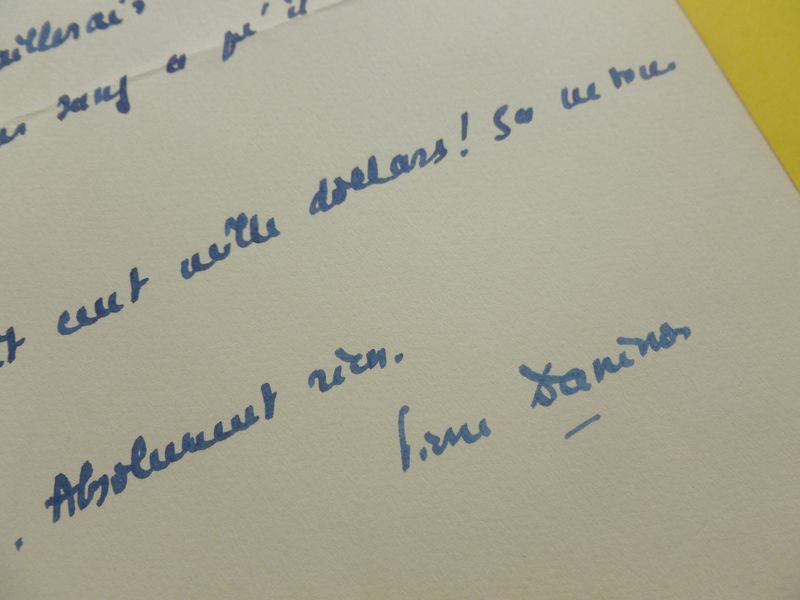 aillerais
sang a qu'il
cent mille dollars! Ça
. Absolument rien.
Pierre Daninos